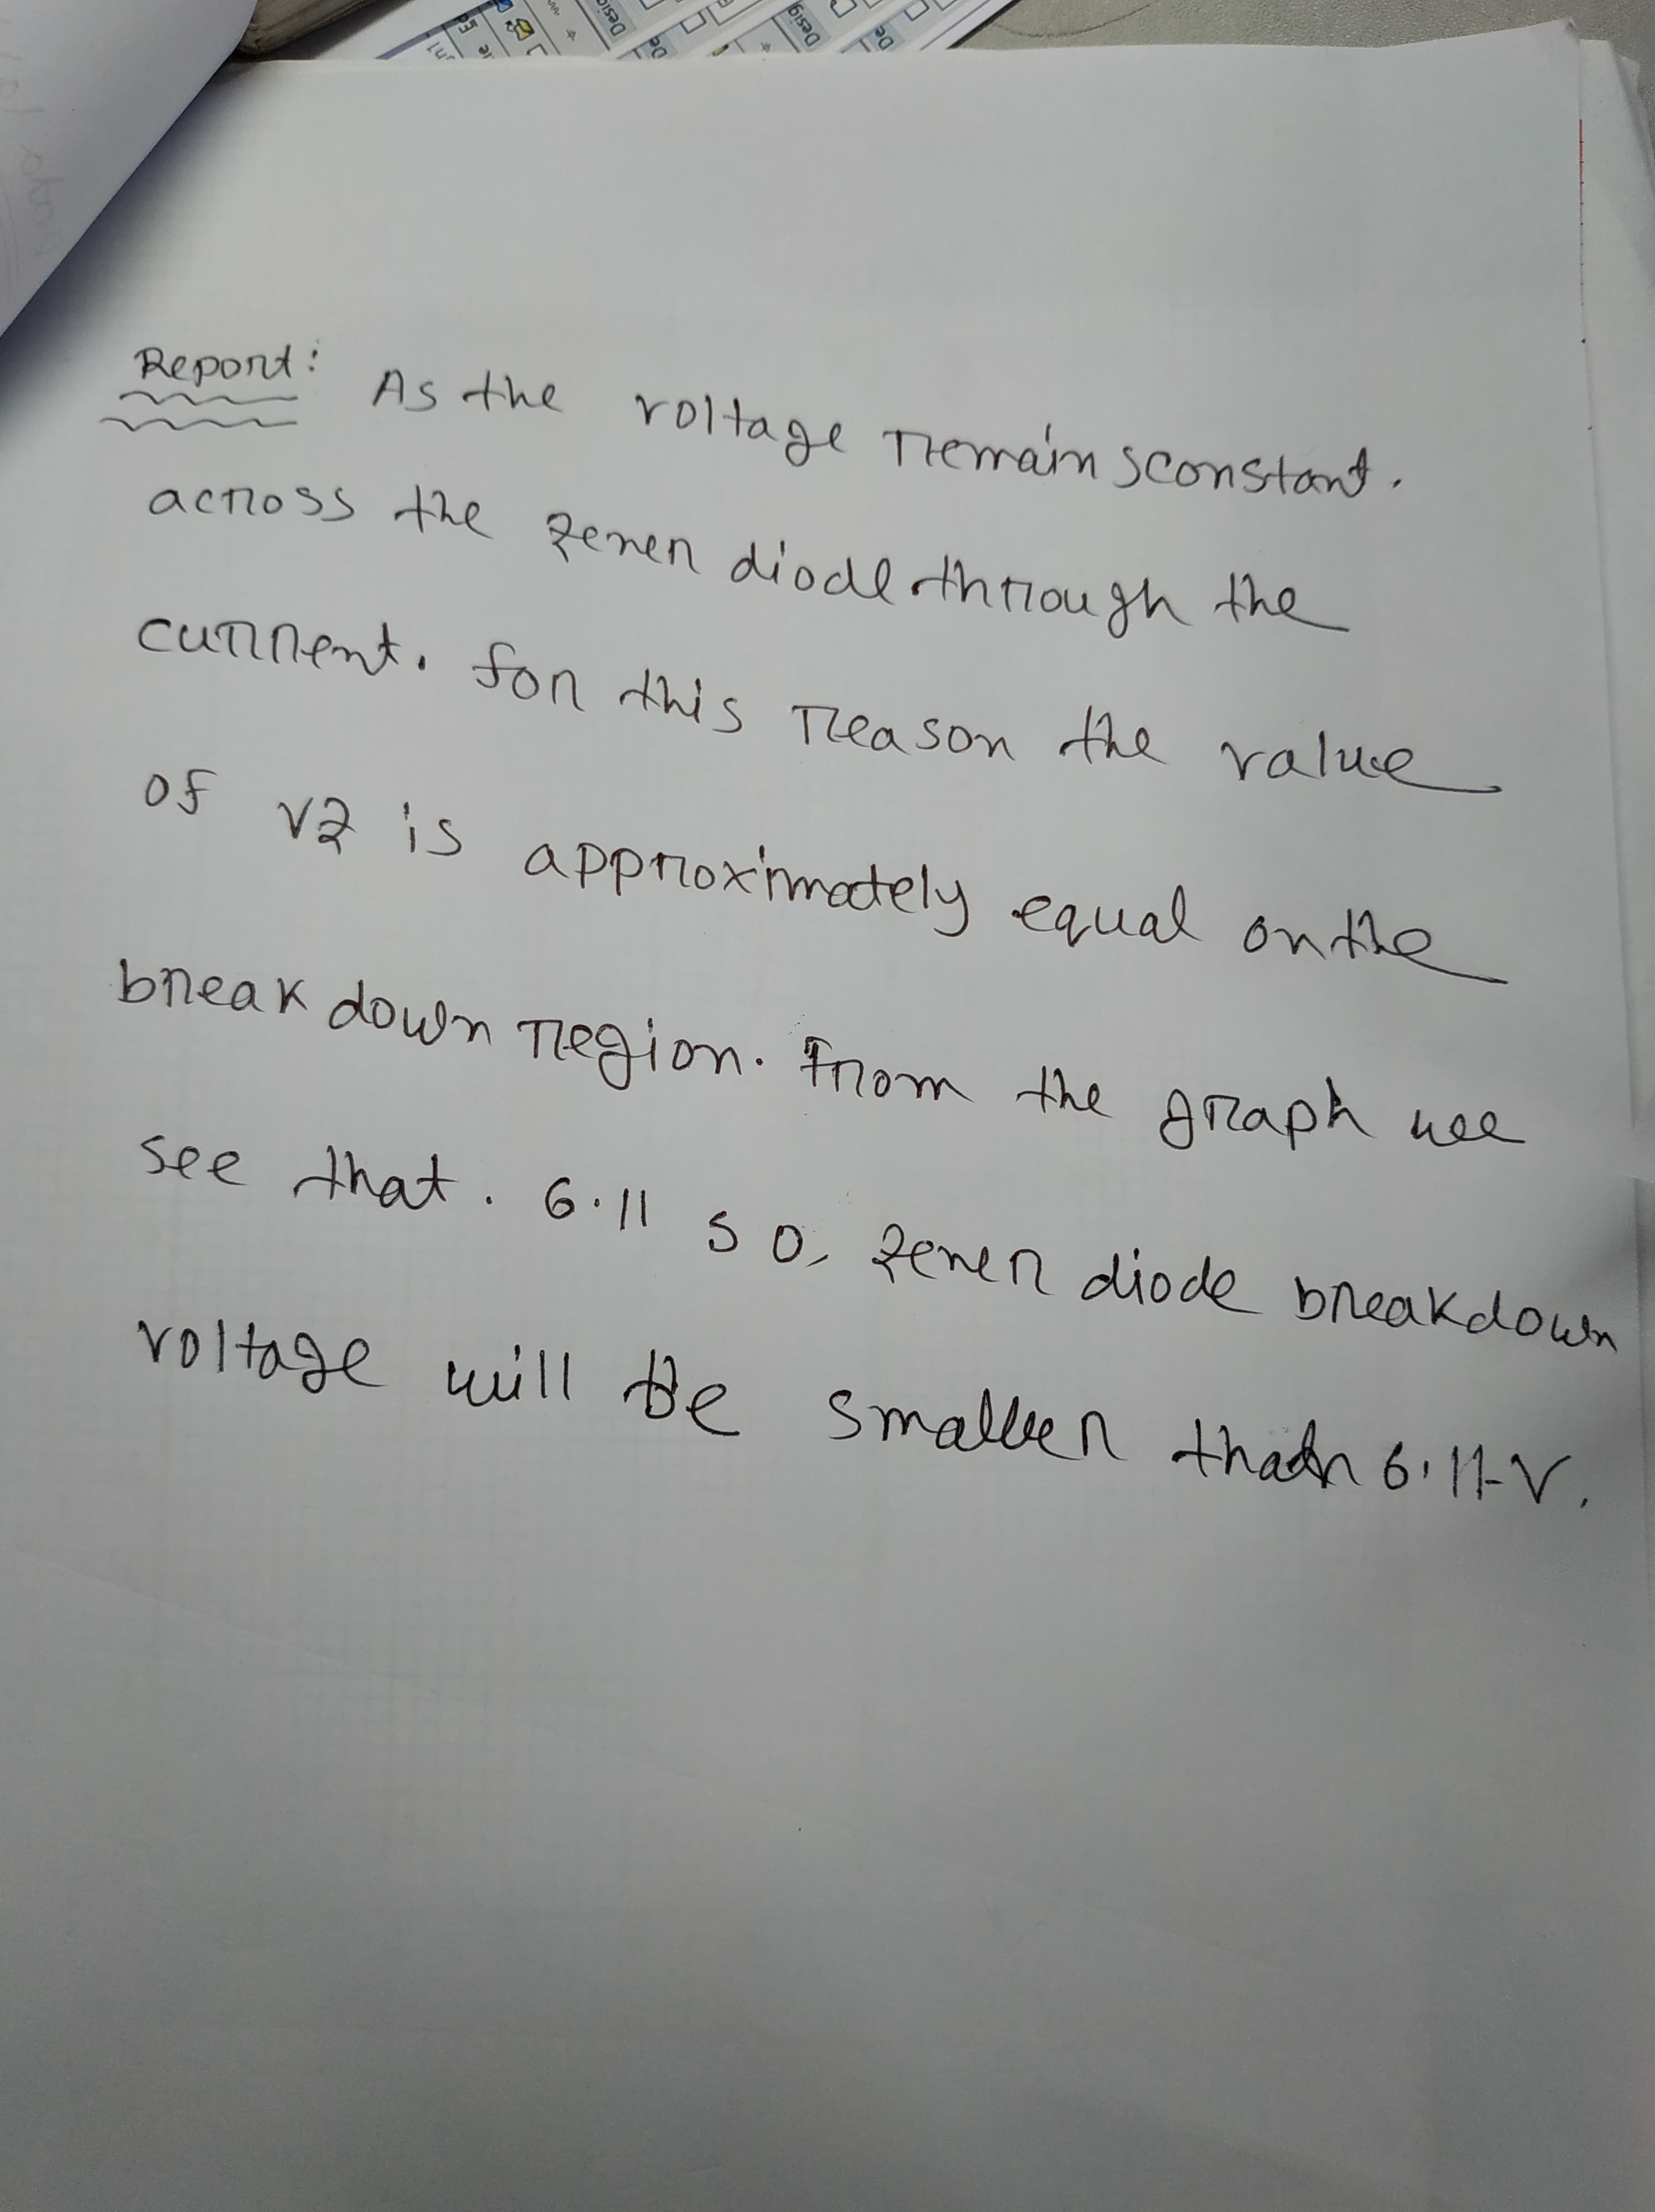 Desig
De
Desig
De
Report: As the voltage remains constant.
across the zener diode through the
current. for this reason the value
of vz is approximately equal on the
break down region. From the graph we
see that. 6.11 so, zener diode breakdown
voltage will be smaller than 6.11-V.